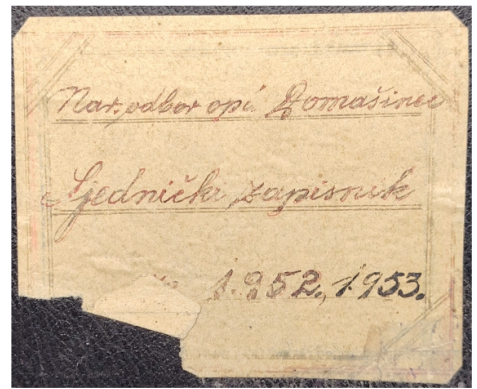 Nar. odbor opć. Domašinec
Sjednički zapisnik
1.952., 1.953.